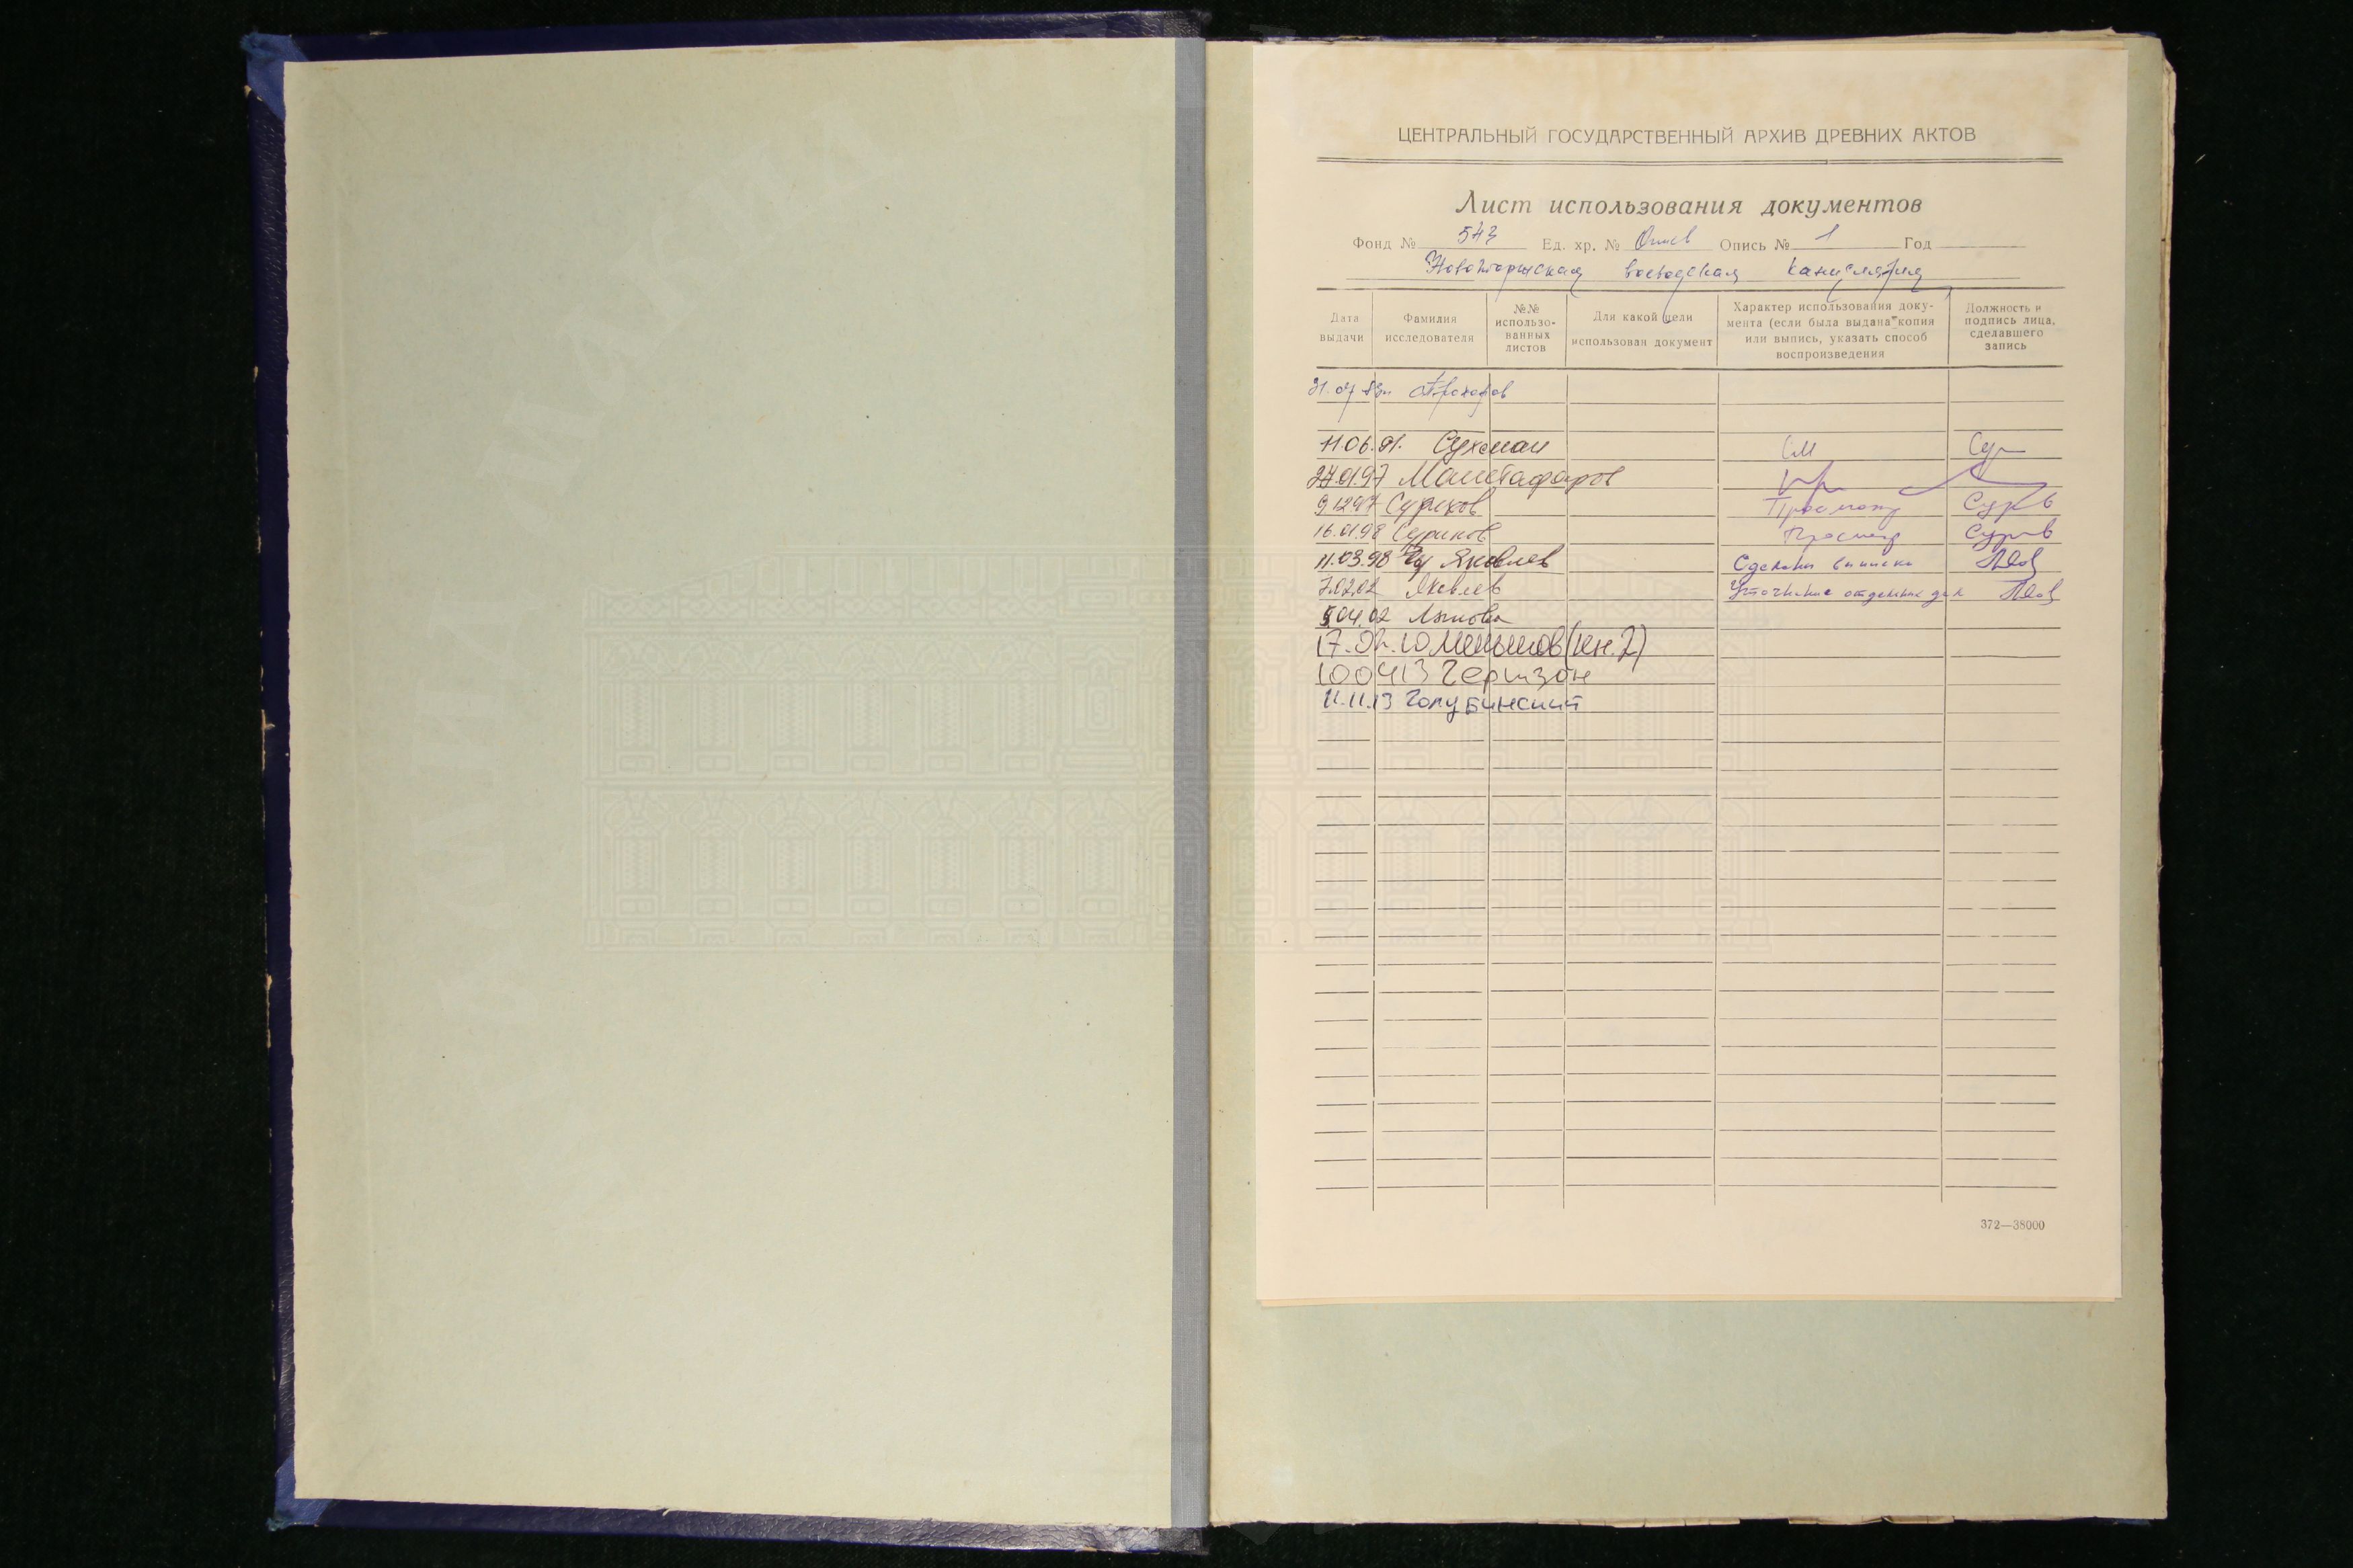 ЦЕНТРАЛЬНЫЙ ГОСУДАРСТВЕННЫЙ АРХИВ ДРЕВНИХ АКТОВ
Лист использования документов
Фонд № 543 Ед. хр. № Опись № 1 Год
Новоторжская воеводская канцелярия
Дата выдачи
Фамилия исследователя
№№ использо-
ванных
листов
Для какой цели
использован документ
Характер использования доку-
мента (если была выдана копия
или выпись, указать способ
воспроизведения
Должность и
подпись лица,
сделавшего
запись
Прохоров
11.06.91. Сухман См
27.01.97
9.12.97 Суриков Просмотр
16.01.98 Суриков Просмотр
11.03.98 Яковлев Сделаны выписки
7.02.02 Яковлев Уточнение отдельных дел
5.04.02
17.02.10 Меньшов (кн. 2)
100413 Гершзон
11.11.13 Голубинский
372—38000